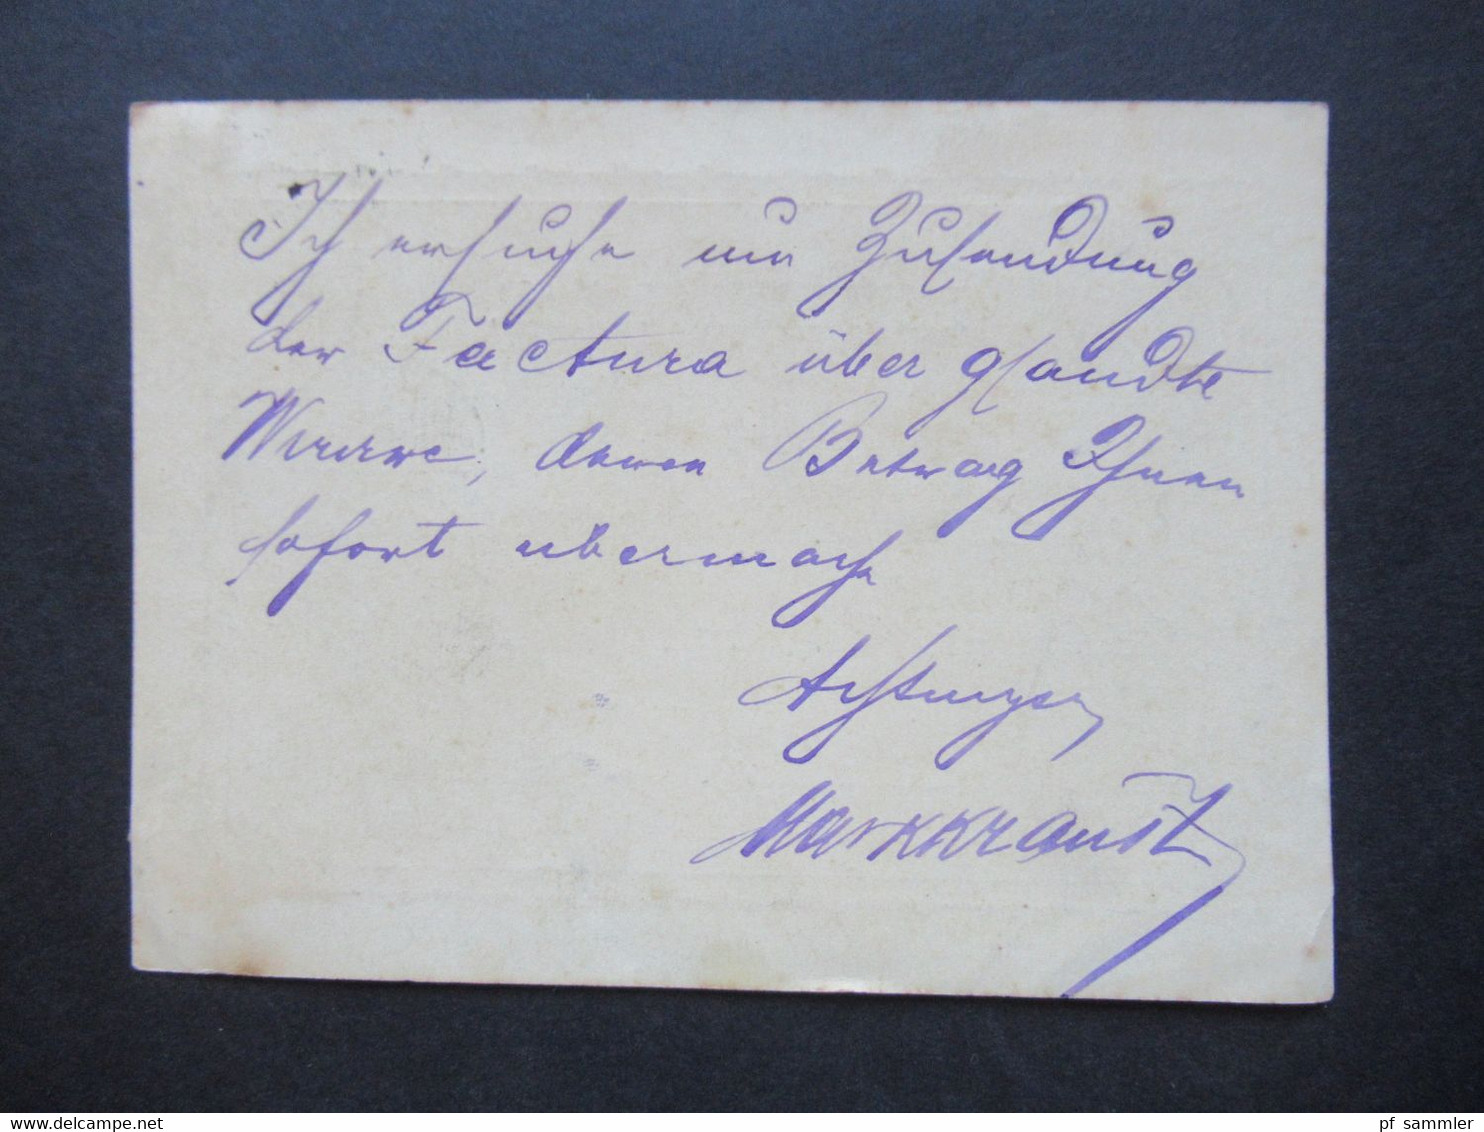 Ich ersuche um Zusendung
der Factura über gesandte
Waare, deren Betrag Ihnen
sofort übermache
Achtungs
www.delcampe.net
pf_sammler